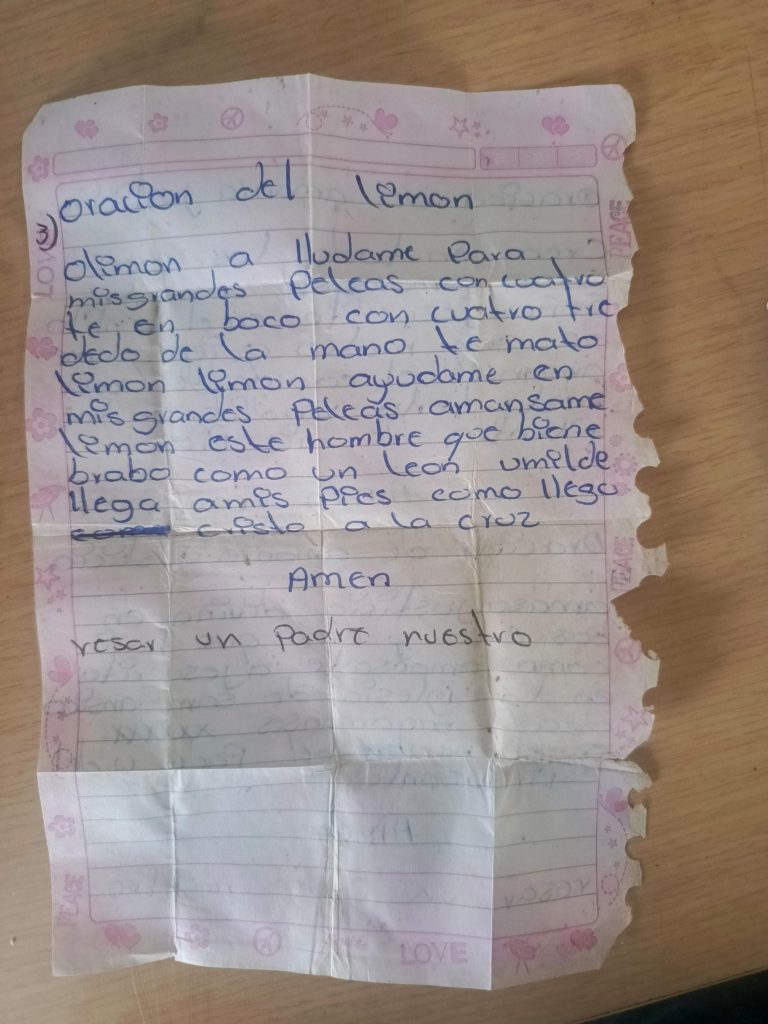 oracion del lemon
3)
olemon a lludame para
misgrandes peleas concuatro
te en boco con cuatro tre
dedo de la mano te mato
lemon lemon ayudame en
mis grandes peleas amansame
lemon este hombre que biene
brabo como un leon umilde
llega amis pies como llego
cristo a la cruz
Amen
resar un padre nuestro
LOVE
PEACE
PEACE
PEACE
LOVE